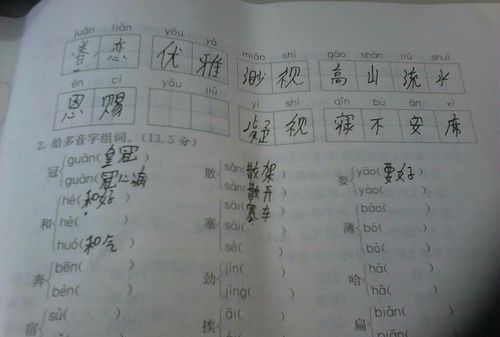 juàn liàn yōu yǎ miǎo shì gāo shān liú shuǐ
眷 恋 优 雅 渺 视 高 山 流 水
ēn cì yōu jiǔ yí shì qǐn bù ān xí
恩 赐 疑 视 寝 不 安 席
2. 给多音字组词。(13.5分)
冠 guān(皇冠) 散 sǎn(散架) 要 yāo(要好)
guàn(冠心病) sàn(散开) yào( )
和 hé(和好) 塞 sāi(塞车) 薄 báo( )
hè( ) sài( ) bó( )
huó(和气) sè( ) bò( )
奔 bēn( ) 劲 jìn( ) 哈 hā( )
bèn( ) jìng( ) hǎ( )
宿 sù( ) 挨 āi( ) 扁 biǎn( )